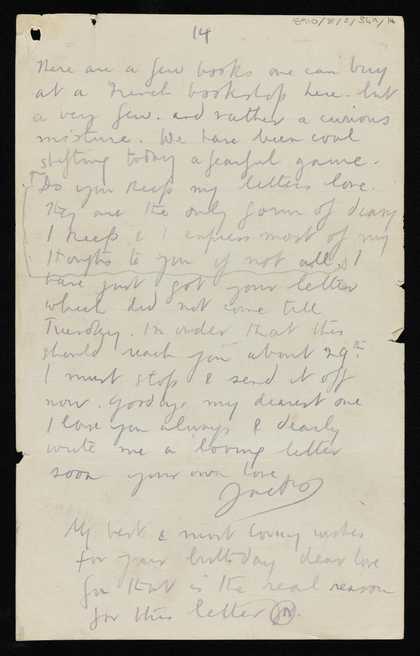 14
There are a few books one can buy
at a French bookshop here. but
a very few. and rather a curious
mixture. We have been coal
shifting today a fearful game.
Do you keep my letters love.
they are the only form of diary
I keep & I express most of my
thoughts to you if not all. I
have just got your letter
which did not come till
Tuesday. In order that this
should reach you about 29th.
I must stop & send it off
now. Goodbye my dearest one
I love you always & dearly
write me a loving letter
soon your own love
My best & most loving wishes
for your birthday dear love
for that is the real reason
for this letter